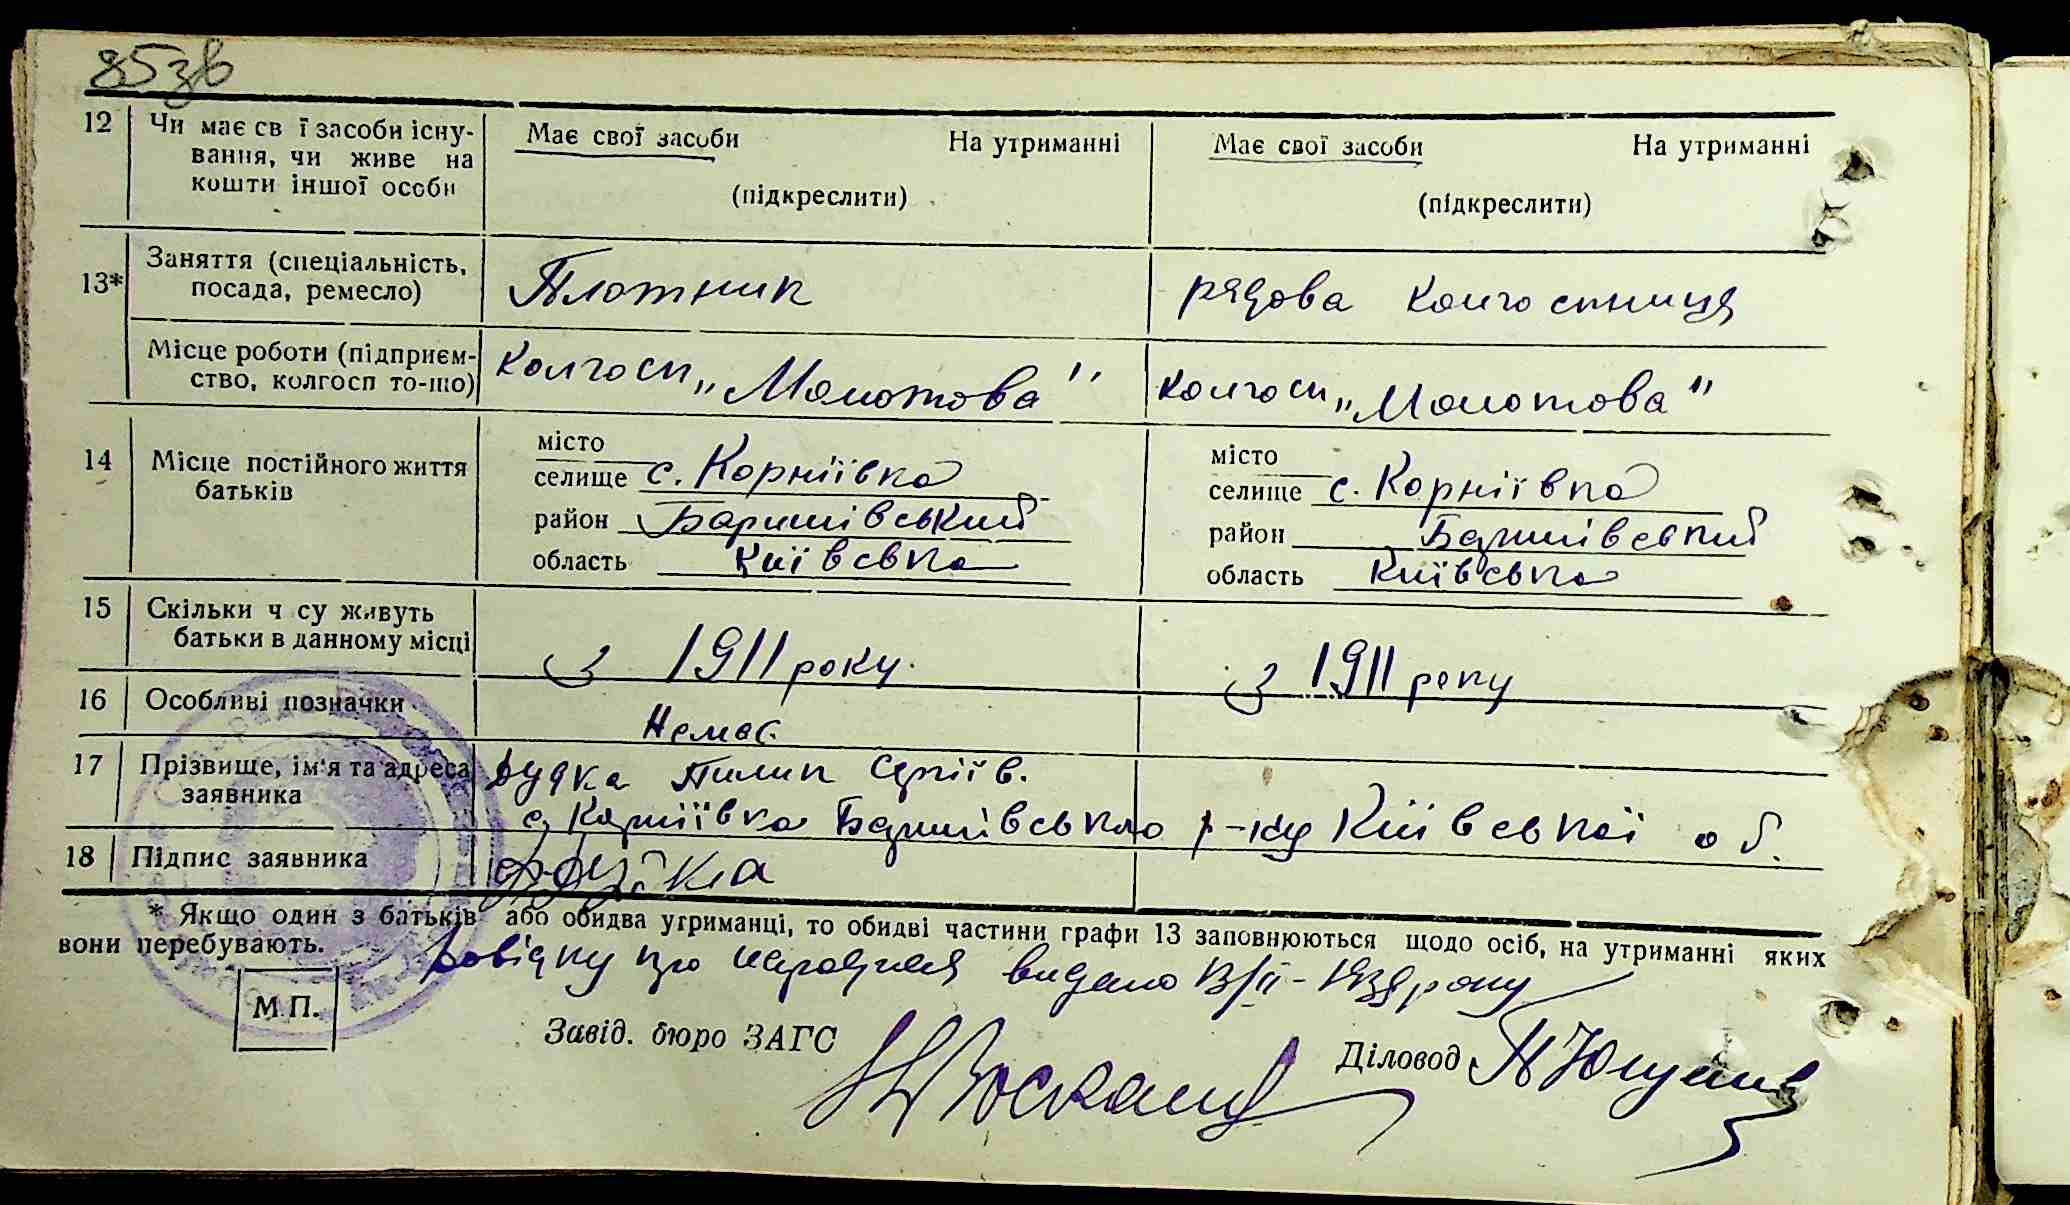 85зв
12 Чи має св ї засоби існу- Має свої засоби На утриманні Має свої засоби На утриманні
вання, чи живе на
кошти іншої особи (підкреслити) (підкреслити)
Заняття (спеціальність,
13* посада, ремесло) Плотник рядова колгоспниця
Місце роботи (підприєм- колгосп „Молотова" колгосп „Молотова"
ство, колгосп то-що)
місто місто
14 Місце постійного життя селище с. Корніївка селище с. Корніївка
батьків район Баришівський район Баришівський
область Київська область Київська
15 Скільки ч су живуть
батьки в данному місці з 1911 року. з 1911 року
16 Особливі позначки Немає.
17 Прізвище, ім'я та адреса Дудка Пилип Сергіїв.
заявника с. Корніївка Баришівського р-ну Київської об.
18 Підпис заявника Дудка
* Якщо один з батьків або обидва утриманці, то обидві частини графи 13 заповнюються щодо осіб, на утриманні яких
вони перебувають.
Довідку про народження видано 13/II-1939 року
М.П.
Завід. бюро ЗАГС Діловод